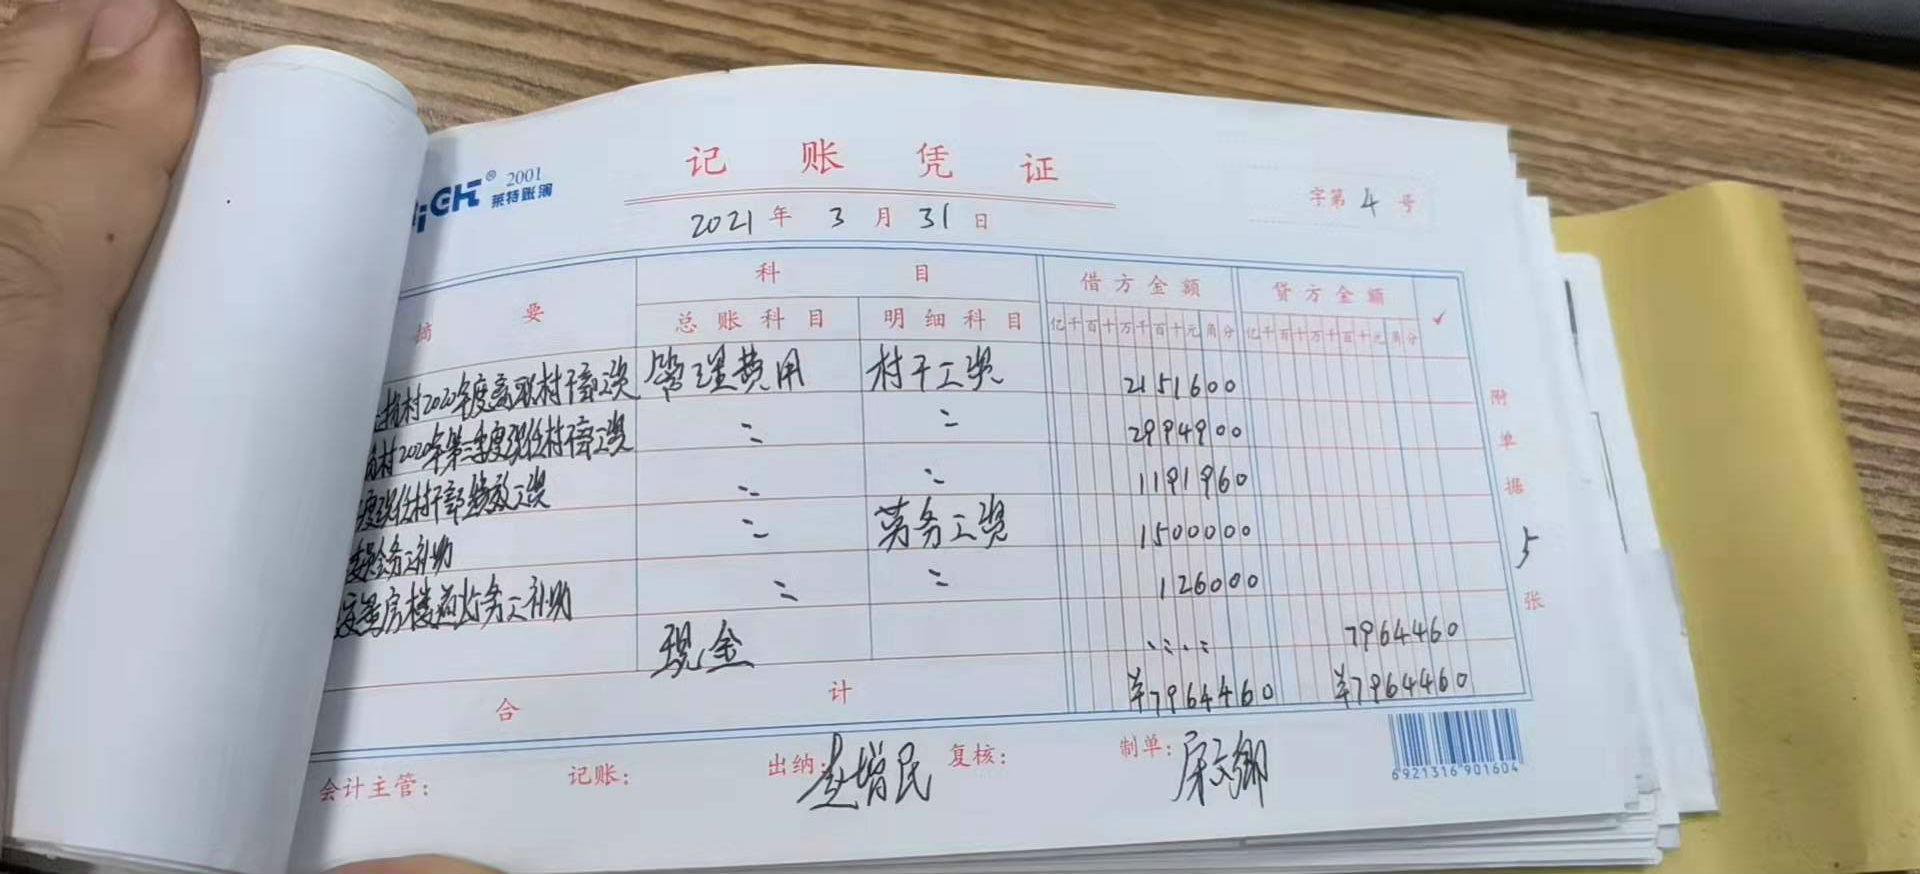 GH® 2001
莱特账簿
记账凭证
2021年3月31日
字第4号
摘要 科目 借方金额 贷方金额 ✓
总账科目 明细科目 亿千百十万千百十元角分 亿千百十万千百十元角分
村2020年度离职村干部工资 管理费用 村干工资 2151600
村2020年第三季度现任村干部工资 〃 〃 2994900
度现任村干部绩效工资 〃 〃 1191960
委员会务工补助 〃 劳务工资 1500000
房楼道灯务工补助 〃 〃 126000
现金 7964460
合计 ¥7964460 ¥7964460
附单据5张
会计主管: 记账: 出纳:赵增民 复核: 制单:
6921316901604